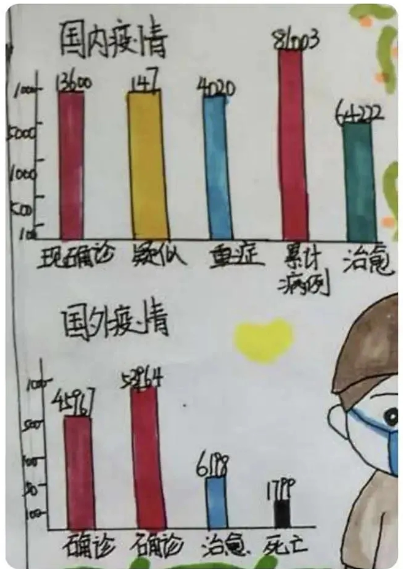 国内疫情
13600 147 4020 81003 64222
1000
5000
1000
500
100
现确诊 疑似 重症 累计病例 治愈
国外疫情
45967 53964 6198 1799
1000
500
100
50
确诊 确诊 治愈 死亡